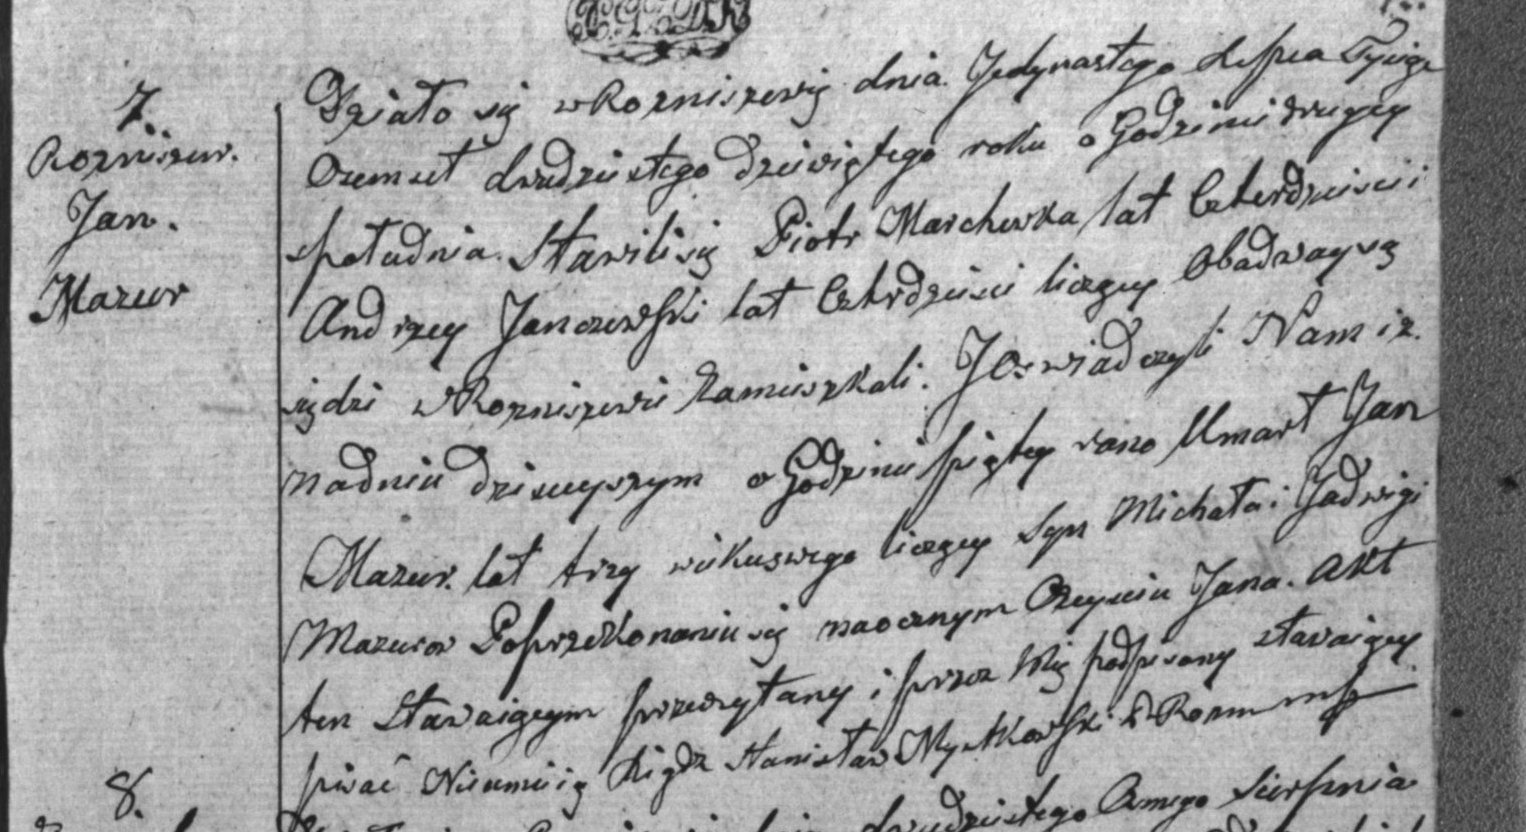 7.
Rozniszew.
Jan.
Mazur
Działo się w Rozniszewie dnia Jedynastego Lipca Tysiąc
Osemset dwudziestego dziewiątego roku o Godzinie drugiey
społudnia. Stawili się Piotr Marchewka lat Czterdzieści i
Andrzey Janczewski lat Czterdzieści liczący Obadway są
siędzi w Rozniszewie Zamieszkali. J Oswiadczyli Nam iz
na dniu dzisieyszym o Godzinie piątey rano Umarł Jan
Mazur. lat trzy wieku swego liczący Syn Michała i Jadwigi
Mazurow Po przekonaniu się naocznym Ozeysciu Jana. Akt
ten Stawaiącym przeczytany i przez Mię podpisany stawaiący
pisać Nieumieią Xiądz Stanisław
8.
dwudziestego Osmego Sierpnia